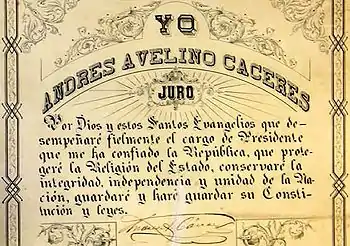 YO
ANDRES AVELINO CACERES
JURO
Por Dios y estos Santos Evangelios que de-
sempeñaré fielmente el cargo de Presidente
que me ha confiado la República, que prote-
geré la Religion del Estado, conservaré la
integridad, independencia y unidad de la Na-
ción, guardaré y haré guardar su Consti-
tución y leyes.